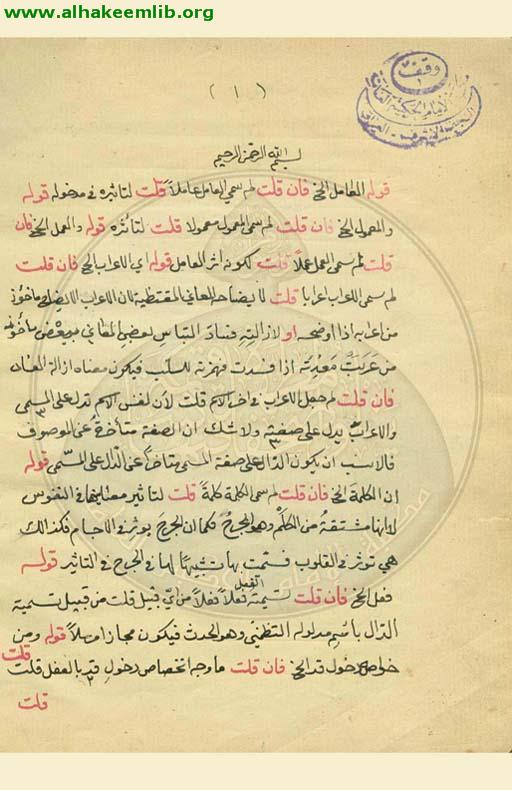 www.alhakeemlib.org
وقف
(١)
بسم الله الرحمن الرحيم
قوله العامل الخ فان قلت لم سمي العامل عاملاً قلت لتاثيره في مدخوله قوله
والمعمول الخ فان قلت لم سمي المعمول معمولا قلت لتأثره قوله والعمل الخ فان
قلت لم سمي العمل عملاً قلت لكونه اثر العامل قوله اي الاعراب الخ فان قلت
لم سمي الاعراب اعرابا قلت لايضاحه المعاني المقتضية لان الاعراب الايضاح مأخوذ
من اعرابه اذا اوضحه او لازالته فساد التباس بعض المعاني ببعض مأخوذ
من عربت معدته اذا فسدت فهمزته للسلب فيكون معناه ازالة الفساد
فان قلت لم جعل الاعراب في اخر الاسم قلت لأن نفس الاسم تدل على المسمى
والاعراب يدل على صفته ولا شك ان الصفة متأخرة عن الموصوف
فالانسب ان يكون الدال على صفة المسمى متأخراً عن الدال على المسمى قوله
ان الكلمة الخ فان قلت لم سمي الكلمة كلمة قلت لتاثير معناها في النفوس
لانها مشتقة من الكلم وهو الجرح فكما ان الجرح يوثر في الاجسام فكذالك
هي توثر في القلوب فسميت بها تشبيهًا لها في الجرح في التاثير قوله
فعل الخ فان قلت تسمية الفعل فعلاً من اي قبيل قلت من قبيل تسمية
الدال باسم مدلوله التضمني وهو الحدث فيكون مجازا مرسلاً قوله ومن
خواصه دخول قد الخ فان قلت ما وجه اختصاص دخول قد بالفعل قلت
قلت
قلت